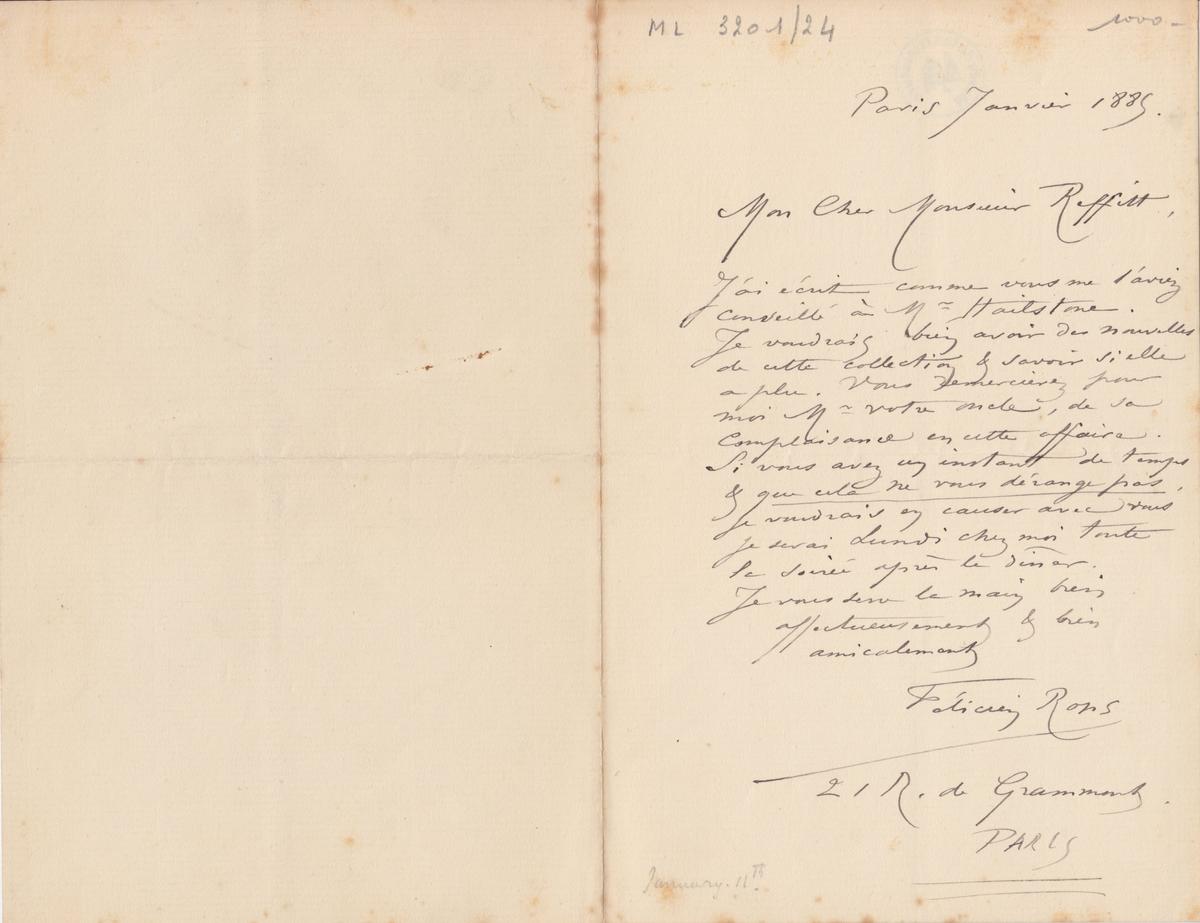 ML 3201/24
1000-
Paris Janvier 1885.
Mon Cher Monsieur Reffitt,
J'ai écrit comme vous me l'aviez
conseillé à Mr Hailstone.
Je voudrais bien avoir des nouvelles
de cette collection & savoir si elle
a plu. Vous remercierez pour
moi Mr votre oncle, de sa
Complaisance en cette affaire.
Si vous avez un instant de temps
& que cela ne vous dérange pas,
je voudrais en causer avec vous
je serai Lundi chez moi toute
la soirée après le dîner.
Je vous serre la main bien
affectueusement & bien
amicalement
Félicien Rops
21 R. de Grammont.
PARIS
January. 11th.